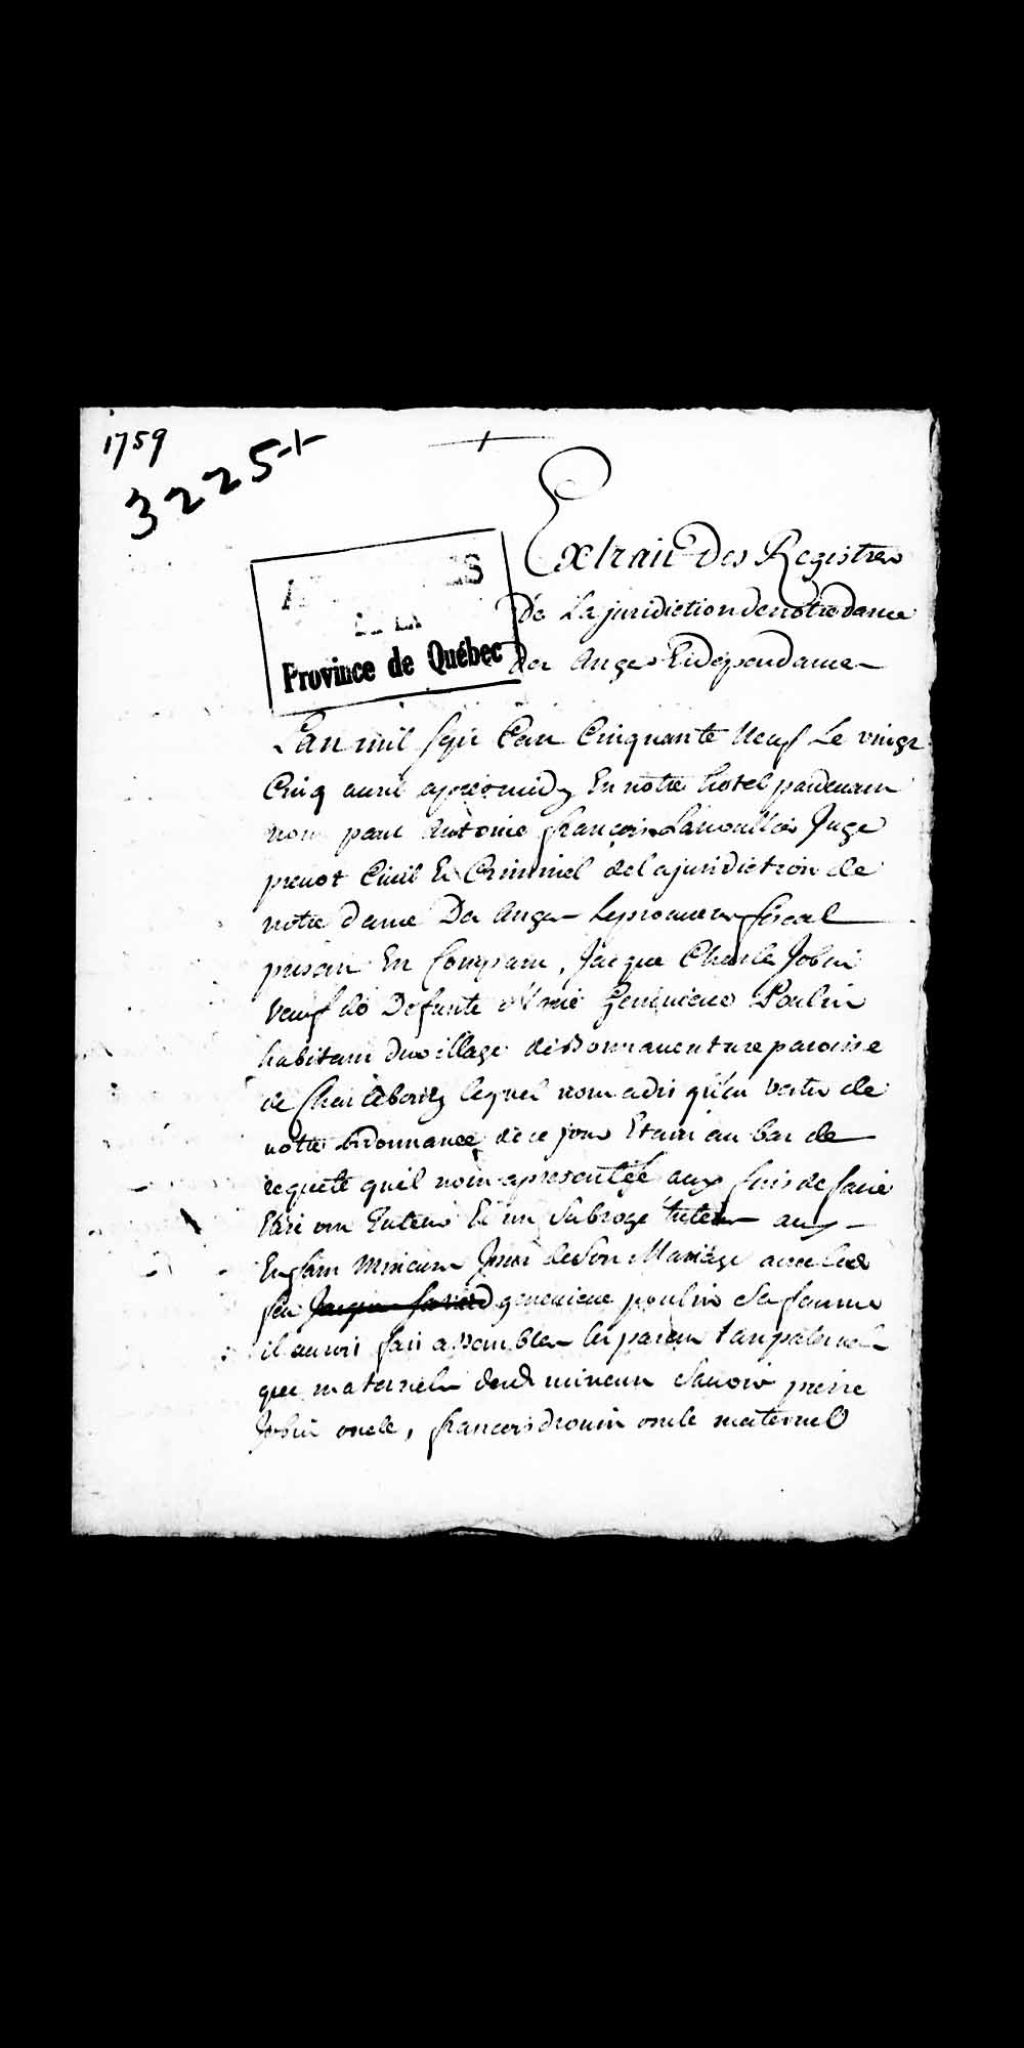 1759
3225+
Province de Québec
Extrait Des Registres
De La juridiction de notre dame
Des Anges Et dependance
Lan mil sept Cent Cinquante Neuf Le vingt
Cinq avril apres midy En notre hotel pardevant
nous paul Antoine françois Lanouillier Juge
prevot Civil Et Criminel de la juridiction de
notre dame Des Anges Le procureur fiscal
present En Comparu, Jacque Charle Jobin
Veuf de Defunte Marie Genevieve Poulin
habitant du village de Bonnaventure paroisse
de Charlebourg lequel nous a dit qu'en vertu de
notre ordonnance de ce jour Etant au bas de
requete quil nous a presentée aux fins de faire
Elire un Tuteur Et un Subrogé tuteur aux
Enfans Mineurs Issus de Son Mariage avec lad
feu genevieve poulin Sa famme
il auroit fait assembler les parens tant paternels
que maternels desd mineurs Savoir pierre
Jobin oncle, francois drouin oncle maternel